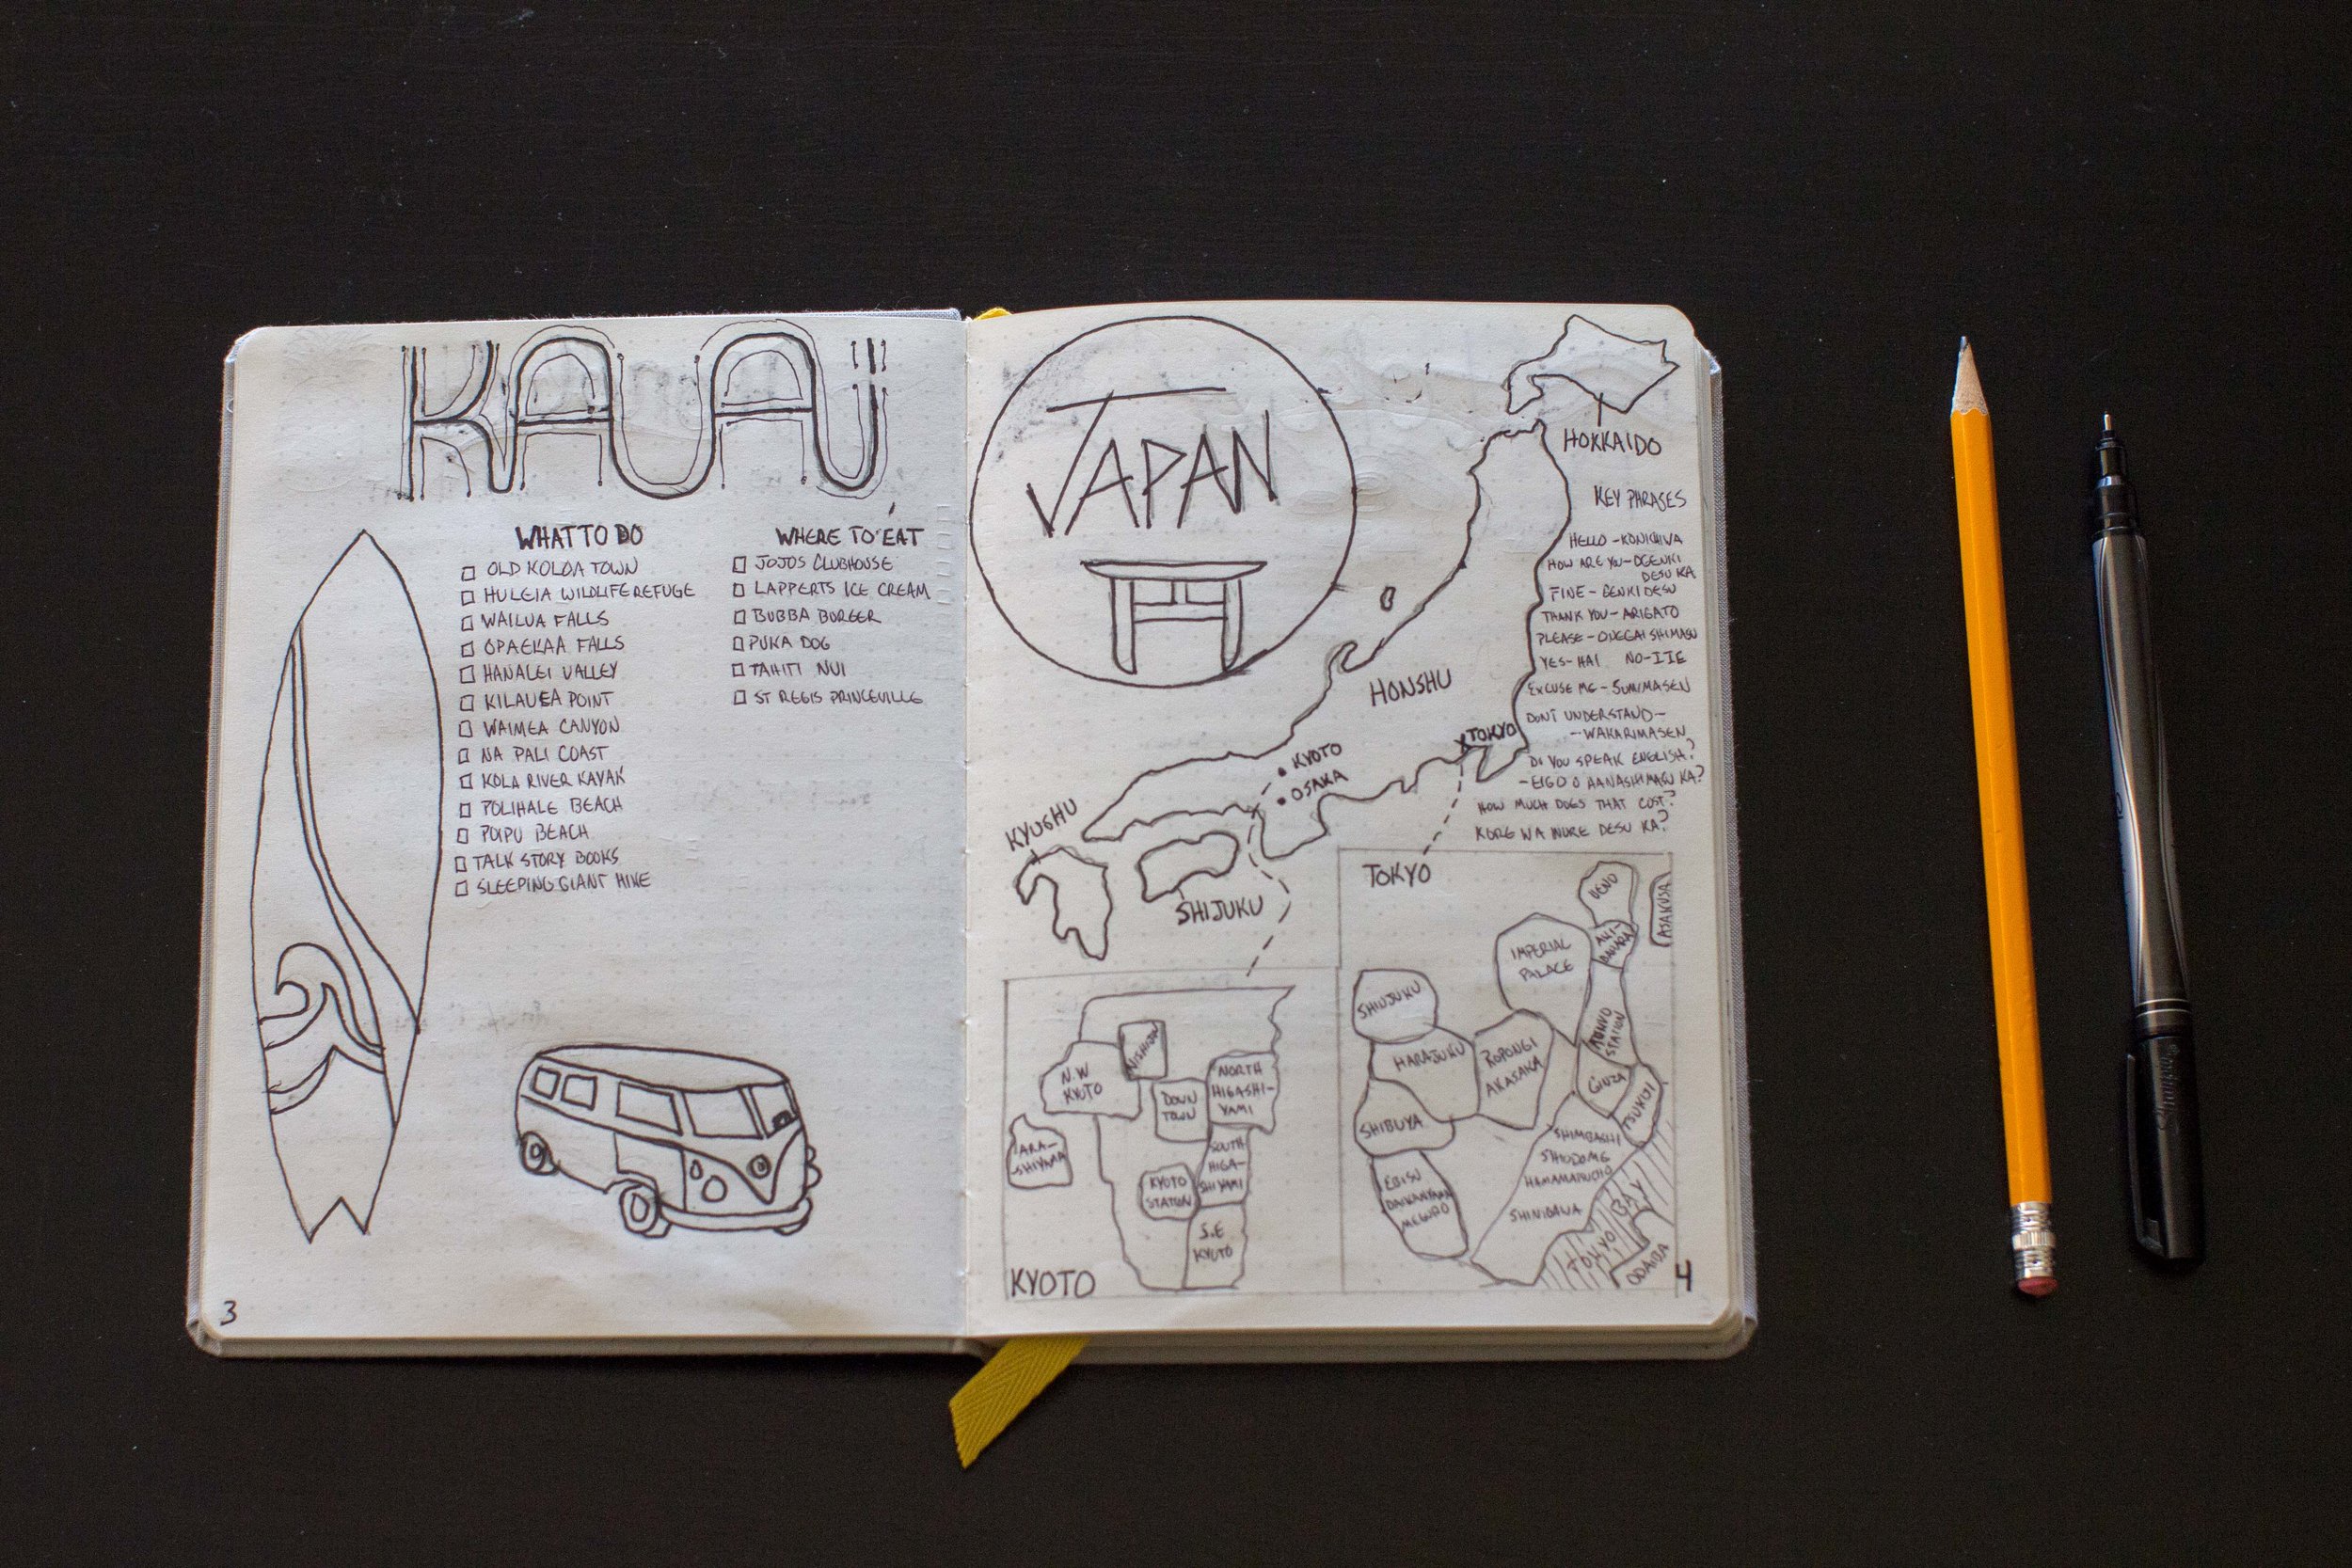 KAUAI
WHAT TO DO
OLD KOLOA TOWN
HULEIA WILDLIFE REFUGE
WAILUA FALLS
OPAEKAA FALLS
HANALEI VALLEY
KILAUEA POINT
WAIMEA CANYON
NA PALI COAST
KOLA RIVER KAYAK
POLIHALE BEACH
POIPU BEACH
TALK STORY BOOKS
SLEEPING GIANT HIKE
WHERE TO EAT
JOJOS CLUBHOUSE
LAPPERTS ICE CREAM
BUBBA BURGER
PUKA DOG
TAHITI NUI
ST REGIS PRINCEVILLE
3
JAPAN
HOKKAIDO
HONSHU
TOKYO
KYOTO
OSAKA
KYUSHU
SHIJUKU
KEY PHRASES
HELLO - KONICHIVA
HOW ARE YOU - OGENKI
DESU KA
FINE - GENKI DESU
THANK YOU - ARIGATO
PLEASE - ONEGAI SHIMASU
YES - HAI NO - IIE
EXCUSE ME - SUMIMASEN
DONT UNDERSTAND -
- WAKARIMASEN
DO YOU SPEAK ENGLISH?
- EIGO O HANASHIMASU KA?
HOW MUCH DOES THAT COST?
KORE WA IKURE DESU KA?
KYOTO
NISHIJIN
N.W
KYOTO
DOWN
TOWN
NORTH
HIGASHI-
YAMI
ARA-
SHIYAMA
SOUTH
HIGA-
SHIYAMI
KYOTO
STATION
S.E
KYOTO
TOKYO
UENO
ASAKUSA
AKI-
IMPERIAL
PALACE
SHINJUKU
HARAJUKU
ROPONGI
AKASAKA
STATION
GINZA
TSUKIJI
SHIBUYA
EBISU
DAIKANYAMA
MEGURO
SHIMBASHI
SHIODOME
SHINIGAWA
TOKYO BAY
ODAIBA
4